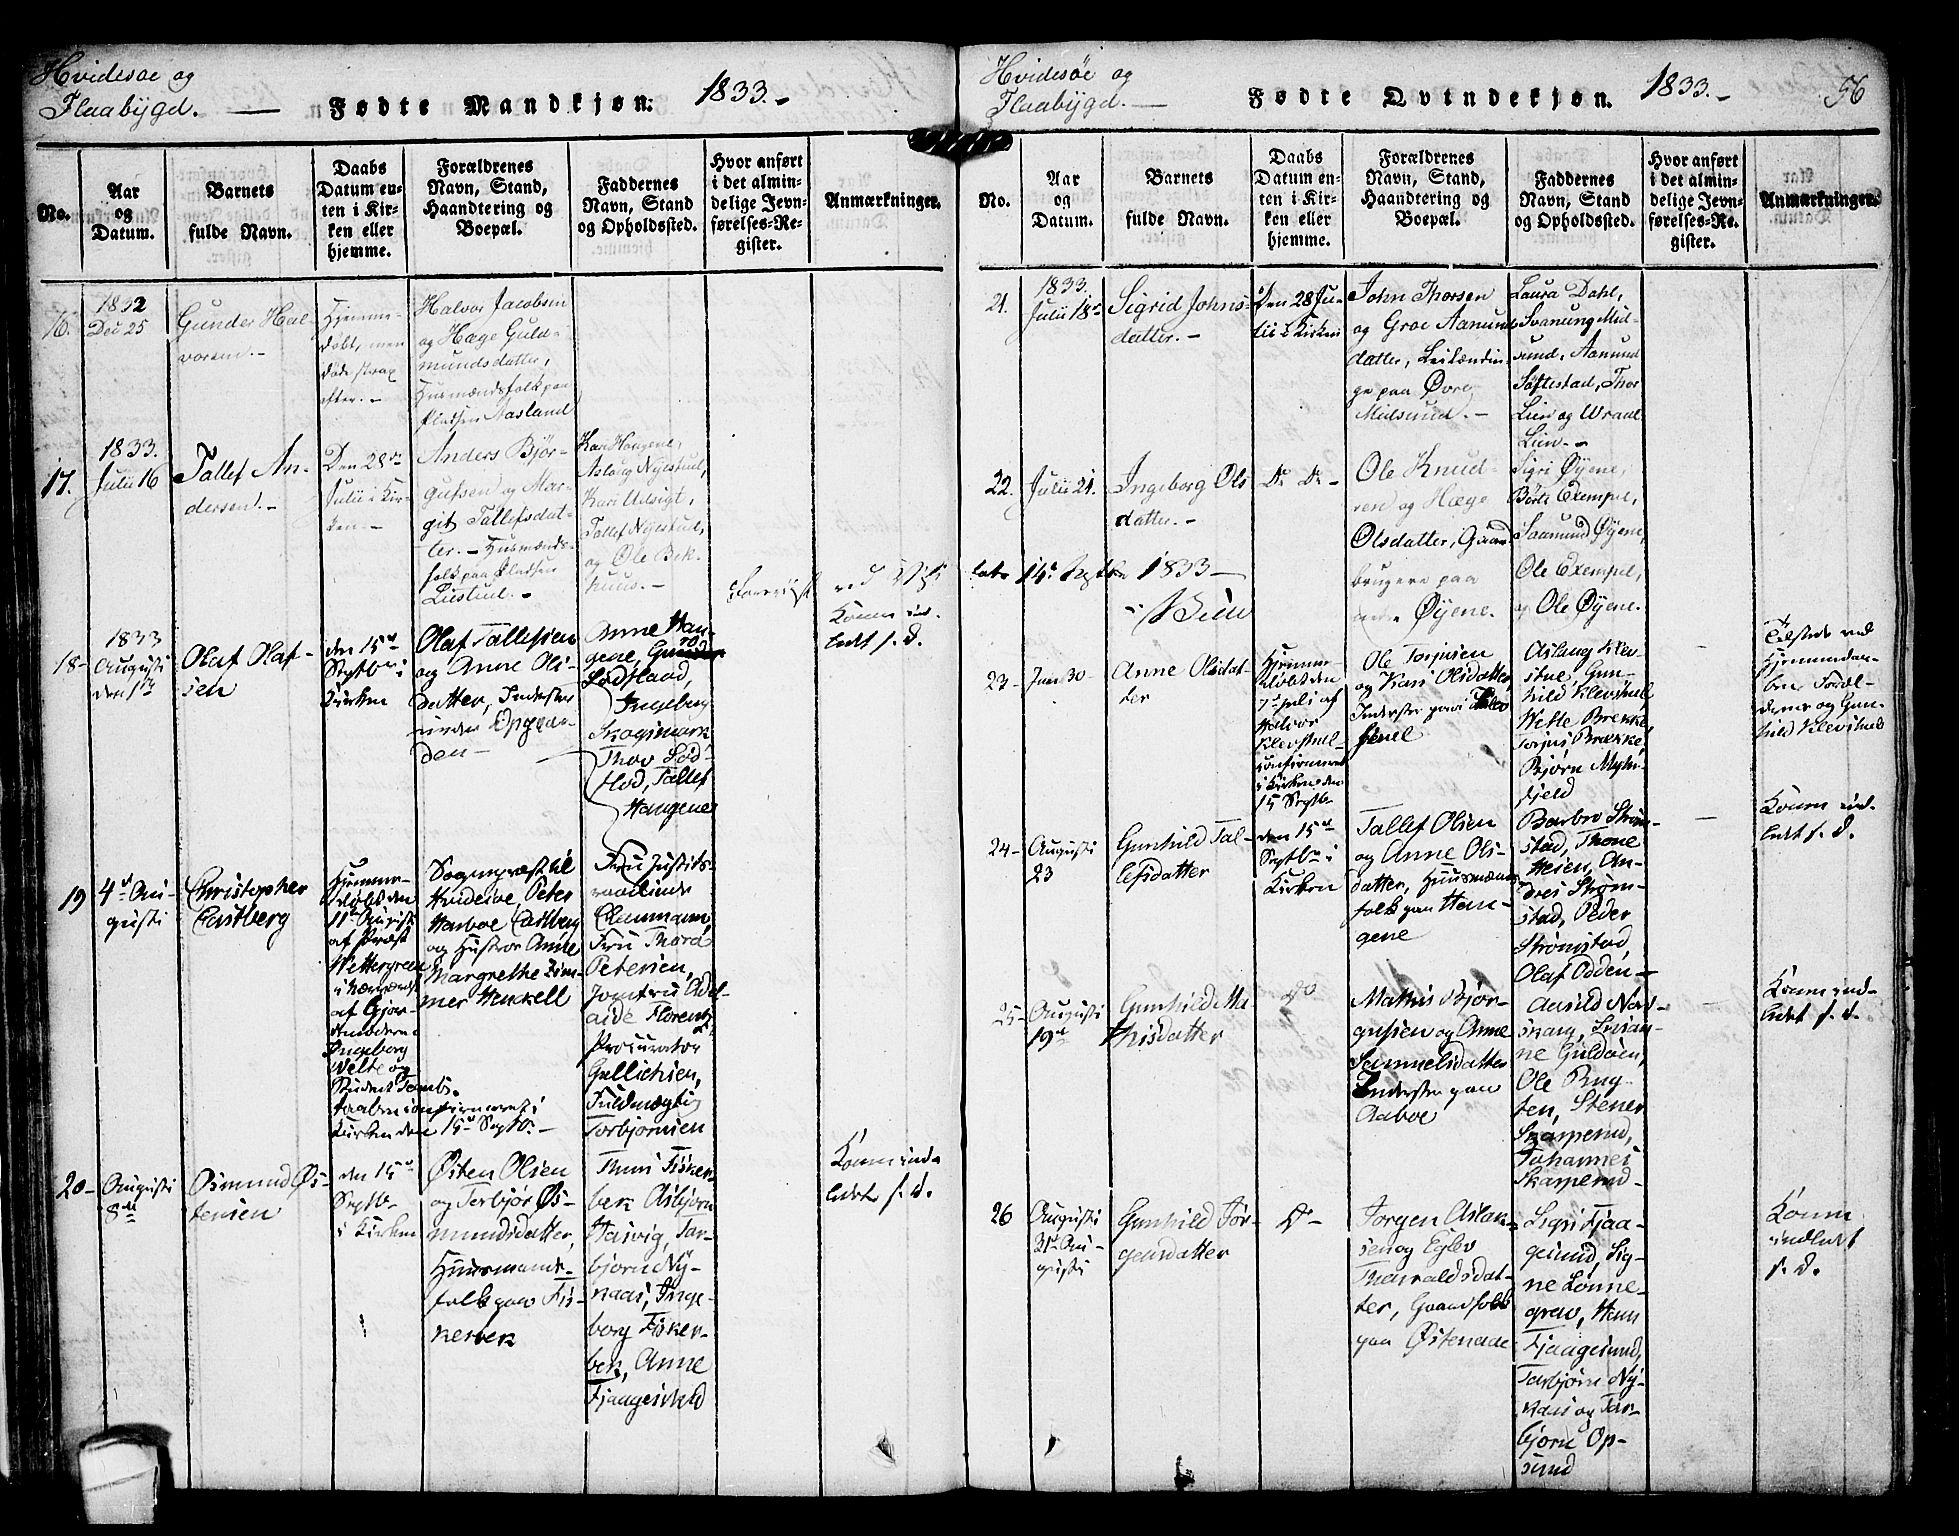 Hvidesøe og
Flaabÿgd. — Fødte Mandkjøn. 1833.-
No.
Aar
og
Datum.
Barnets
fulde Navn.
Daabs
Datum en-
ten i Kir-
ken eller
hjemme.
Forældrenes
Navn, Stand,
Haandtering og
Boepæl.
Faddernes
Navn, Stand
og Opholdssted.
Hvor anført
i det almin-
delige Jevn-
førelses-Re-
gister.
Anmærkninger.
16.
1832
Dec 25
Gunder Hal-
vorsen.-
Hjemme-
døbt, men
døde strax
efter.-
Halvor Jacobsen
og Hæge Guld-
mundsdatter,
Huusmændsfolk paa
Pladsen Aasland
17.
1833.
Julii 16
Tallef An-
dersen.-
Den 28de
Julii i Kir-
ken.-
Anders Bjør-
gufsen og Mar-
git Tallefsdat-
ter.- Husmænds-
folk paa Pladsen
Liestud.-
Kari Haugene,
Aslaug Nyestud,
Kari Udsigt,
Tallef Nyestud,
og Ole Bek-
huus.-
18-
1833
Augusti
den 1ste
Olaf Olaf-
sen
den 15de
Septbr i
Kirken
Olaf Tallefsen
og Anne Ols-
datter, Inderster
under Opgaar-
den-
Anne Hau-
gene,
Lødflaad,
Ingeborg
Skogsmark
Thov Lød-
flod, Tallef
Haugene
Konen ind-
ledt s. d.
19
4de Au-
gusti
Christopher
Castberg
Hjemme-
døbt den
11te Augusti
af Præst
Wettergreen
af Gjor-
demoderen
Ingeborg
Velte og
Student
confirmeret i
Kirken den 15de Septbr.-
Sogneprest til
Hvideсøe Peter
Harboe Castberg
og Hustroe Anne
Margrethe Zim-
mer Henkell
Fru Justits-
raadinde
Claumann,
Fru Thora
Petersen,
Jomfru Adel-
aide Florentz
Procurator
Gullichsen,
Fuldmægtig
Torbjørnsen
20-
Augusti
8de
Osmund Øs-
tensen
den 15de
Septb-
i Kirken
Østen Olsen
og Torbjør Øs-
mundsdatter,
Huusmands-
folk paa Fis-
kerbek
Thuri Fisker-
bek Asbjørn
Hasvig, Tor-
bjørn Ny-
naas, Inge-
borg Fisker-
bek, Anne
Fjaagesund
Konen ind-
ledt s. d.
Hvidesøe og
Flaabÿgd. — Fødte Qvindekjøn. 1833.- 56
No.
Aar
og
Datum.
Barnets
fulde Navn.
Daabs
Datum en-
ten i Kir-
ken eller
hjemme.
Forældrenes
Navn, Stand,
Haandtering og
Boepæl.
Faddernes
Navn, Stand
og Opholdssted.
Hvor anført
i det almin-
delige Jevn-
førelses-Re-
gister.
Anmærkninger.
21.
1833.
Julii 18de
Sigrid Johns-
datter.-
Den 28 Ju-
lii i Kirken
John Thorsen
og Groe Aanunds-
datter, Leilændin-
ge paa Øvre
Midsund.-
Laura Dahl,
Svanung Mid-
sund, Aanund
Søftestad, Thor
Lien og Wraal
Lien.-
22.
Julii 21.
Ingeborg Ols-
datter.-
Do Do-
Ole Knud-
sen og Hæge
Olsdatter, Gaard-
brugere paa
Øyene.
Sigri Øÿene,
Børte Exempel,
Saamund Øÿene,
Ole Exempel,
og Ole Øÿene.
15de Septbr 1833-
23-
Juni 30-
Anne Olsdat-
ter
Hjemme-
døbt den
7de Juli af
Halvor
Klevstuel-
confirmeret
i Kirken den
15 Septb-
Ole Torjusen
og Kari Olsdatter
Inderster paa Klev-
stuel
Aslaug Klev-
stue, Gun-
hild Klevstuel,
Wette Brekke,
Torjus Brække,
Bjørn
fjeld
Tilstede ved
Hjemmedaa-
ben Foræl-
drene og Gun-
hild Klevstuel
24-
Augusti
23
Gunhild Tal-
lefsdatter
den 15de
Septbr i
Kirken
Tallef Olsen
og Anne Ols-
datter, Huusmænds-
folk paa Hau-
gene
Barbro Strøm-
stad, Thone
Heien, An-
dres Strøm-
stad, Peder
Strømstad,
Olaf Odden-
Konen ind-
ledt s. d.
25-
Augusti
19de
Gunhild Ma-
thisdatter
Do
Mathis Bjør-
gufsen og Anne
Samuelsdatter
Inderster paa
Aaboe
Aasild Nord-
skaug, Svian-
ne Guldøen,
Ole Brug-
ten, Stener
Skarperud,
Johannes
Skarperud-
Konen ind-
ledt s. d.
26
Augusti
31te Au-
gusti
Gunhild Jør-
gensdatter
Do-
Jørgen Aslak-
sen og Eglev
Thorvaldsdat-
ter, Gaardfolk
paa Østenaae
Sigri Fjaa-
gesund, Sig-
ne Lønne-
grav, Hans
Fjaagesund,
Torbjørn Ny-
naas og Tor-
bjørn Op-
sund
Konen
indledt
s. d.